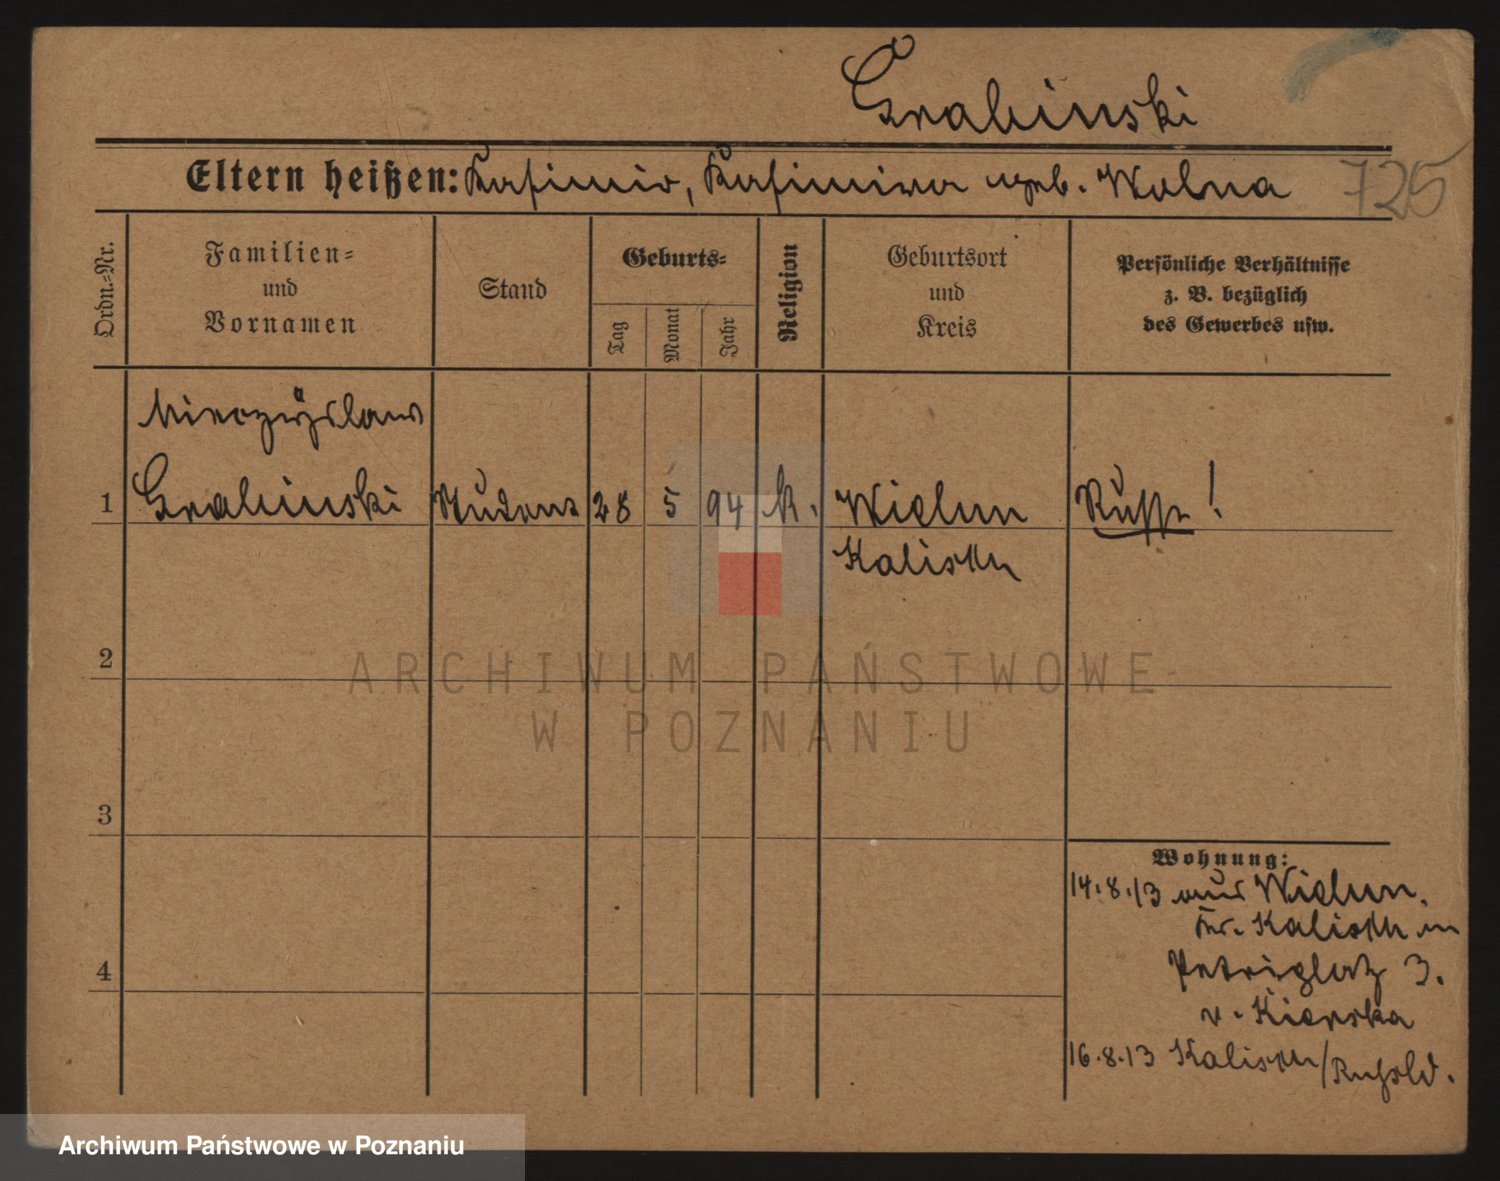 Grabinski
Eltern heißen: Kasimir, Kasimira geb. Wolna
725
Ordn.-Nr.
Familien-
und
Vornamen
Stand
Geburts-
Tag
Monat
Jahr
Religion
Geburtsort
und
Kreis
Persönliche Verhältnisse
z. B. bezüglich
des Gewerbes usw.
Mieczyslaw
1 Grabinski Student 28 5 94 k. Wielun Russe!
Kalisch
2
ARCHIWUM PAŃSTWOWE
W POZNANIU
3
Wohnung:
14.8.13 aus Wielun.
Kr. Kalisch in
Petriplatz 3.
v. Kierska
4
16.8.13 Kalisch/Rußld.
Archiwum Państwowe w Poznaniu